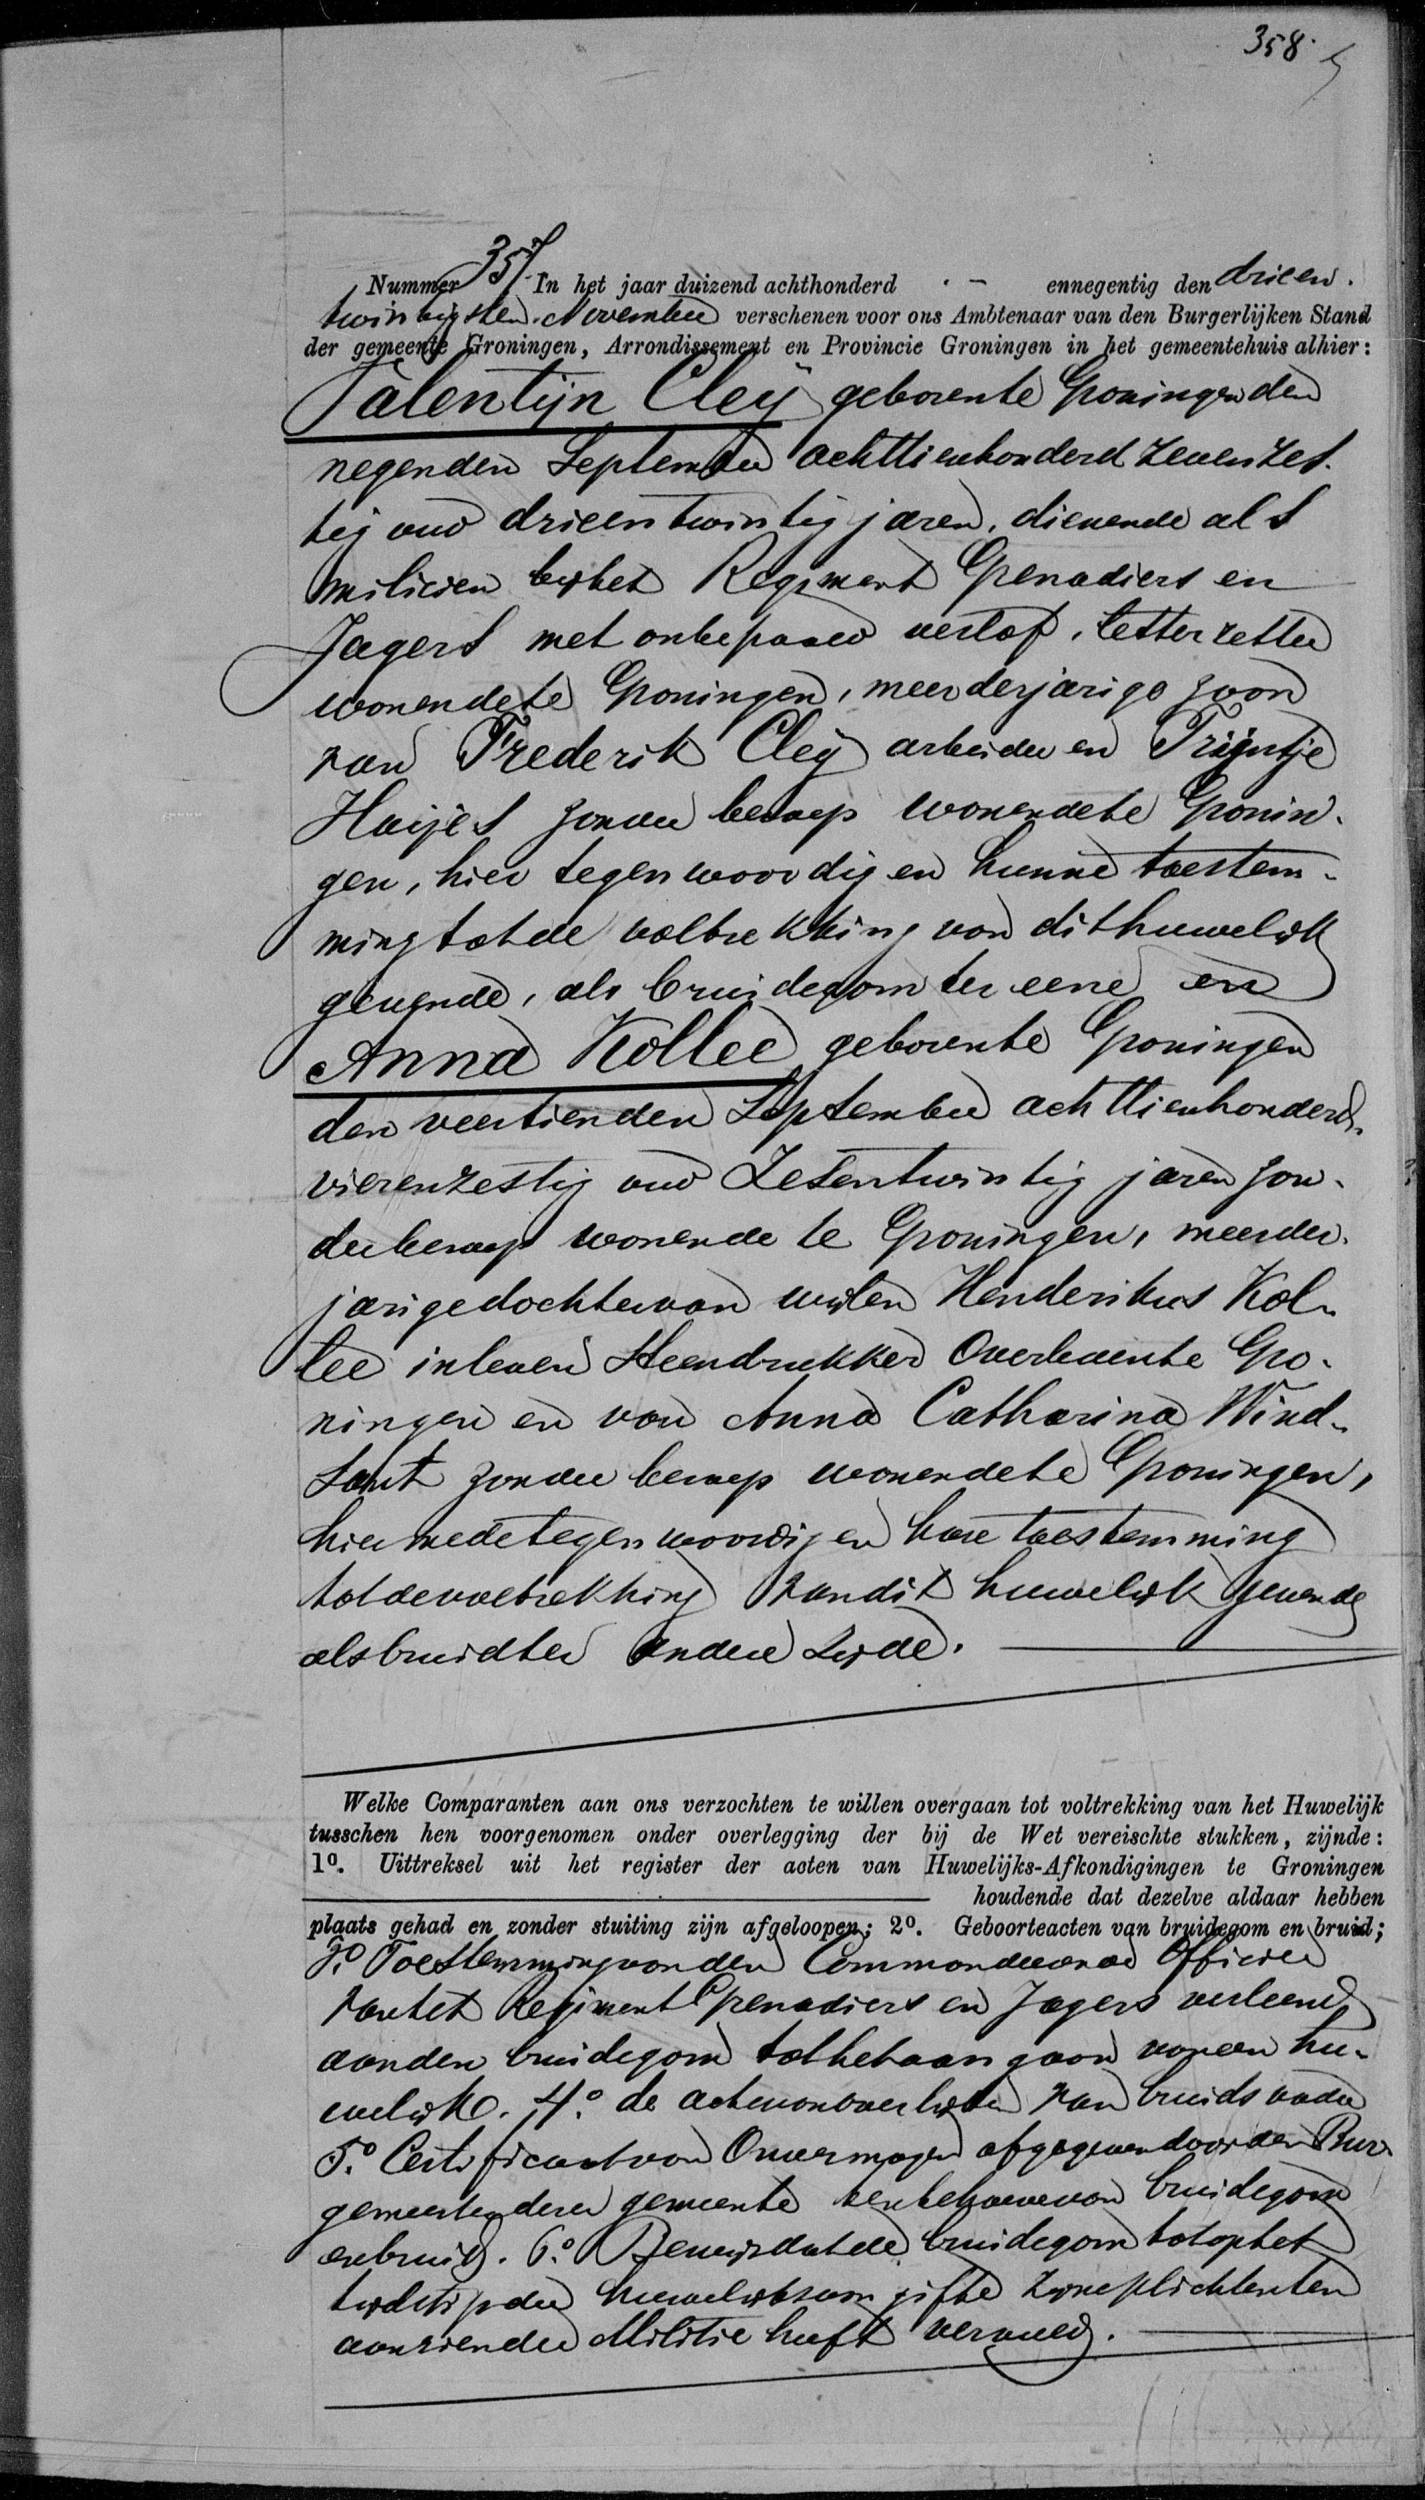 358.
Nummer 357. In het jaar duizend achthonderd . – ennegentig den drieen.
twintigsten November verschenen voor ons Ambtenaar van den Burgerlijken Stand
der gemeente Groningen, Arrondissement en Provincie Groningen in het gemeentehuis alhier:
Valentijn Cleij geboren te Groningen den
negenden September achttienhonderd zevenzes-
tig oud drieentwintig jaren, dienende als
milicien bij het Regiment Grenadiers en
Jagers met onbepaald verlof, letterzetter
wonende te Groningen, meerderjarige zoon
van Frederik Cleij arbeider en Trijntje
Haijes zonder beroep wonende te Gronin-
gen, hier tegenwoordig en hunne toestem-
ming tot de voltrekking van dit huwelijk
gevende, als bruidegom ter eene en
Anna Kollee geboren te Groningen
den veertienden September achttienhonderd-
vierenzestig oud Zesentwintig jaren zon-
der beroep wonende te Groningen, meerder-
jarige dochter van wijlen Henderikus Kol-
lee in leven Steendrukker Overleden te Gro-
ningen en van Anna Catharina Wind-
sant zonder beroep wonende te Groningen,
hier mede tegenwoordig en hare toestemming
tot de voltrekking van dit huwelijk gevende
als bruid ter andere zijde.
Welke Comparanten aan ons verzochten te willen overgaan tot voltrekking van het Huwelijk
tusschen hen voorgenomen onder overlegging der bij de Wet vereischte stukken, zijnde:
1º. Uittreksel uit het register der acten van Huwelijks-Afkondigingen te Groningen
houdende dat dezelve aldaar hebben
plaats gehad en zonder stuiting zijn afgeloopen; 2º. Geboorteacten van bruidegom en bruid;
3.º Toestemming van den Commandeerend Officier
van het Regiment Grenadiers en Jagers verleend
aan den bruidegom tot het aangaan van een hu-
welijk. 4.º de acte van overlijden van bruids vader
5.º Certificaat van Onvermogen afgegeven door den Bur-
gemeester dezer gemeente ten behoeve van bruidegom
en bruid. 6.º Bewijs dat de bruidegom tot op het
tijdstip der huwelijksaangifte zijne plichten ten
aanzien der Militie heeft vervuld.